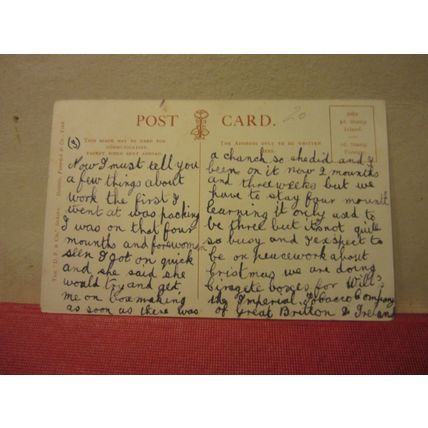 POST CARD.
20
(3)
THIS SPACE MAY BE USED FOR
COMMUNICATION.
THE ADDRESS ONLY TO BE WRITTEN
HERE.
Inland
Now I must tell you
a few things about
work the first I
went at was packing
I was on that four
mounths and forewomen
seen I got on quick
and she said she
would try and get
me on box making
as soon as there was
a chanch so she did and I
been on it now 2 mounths
and three weeks but we
have to stay four mounth
learning it only used to
be three but its not quite
so busy and I expect to
be on peacework about
Cristmas we are doing
Ciragete boxes for Will's
the Imperial Tobacco Company
of Great Britton & Ireland